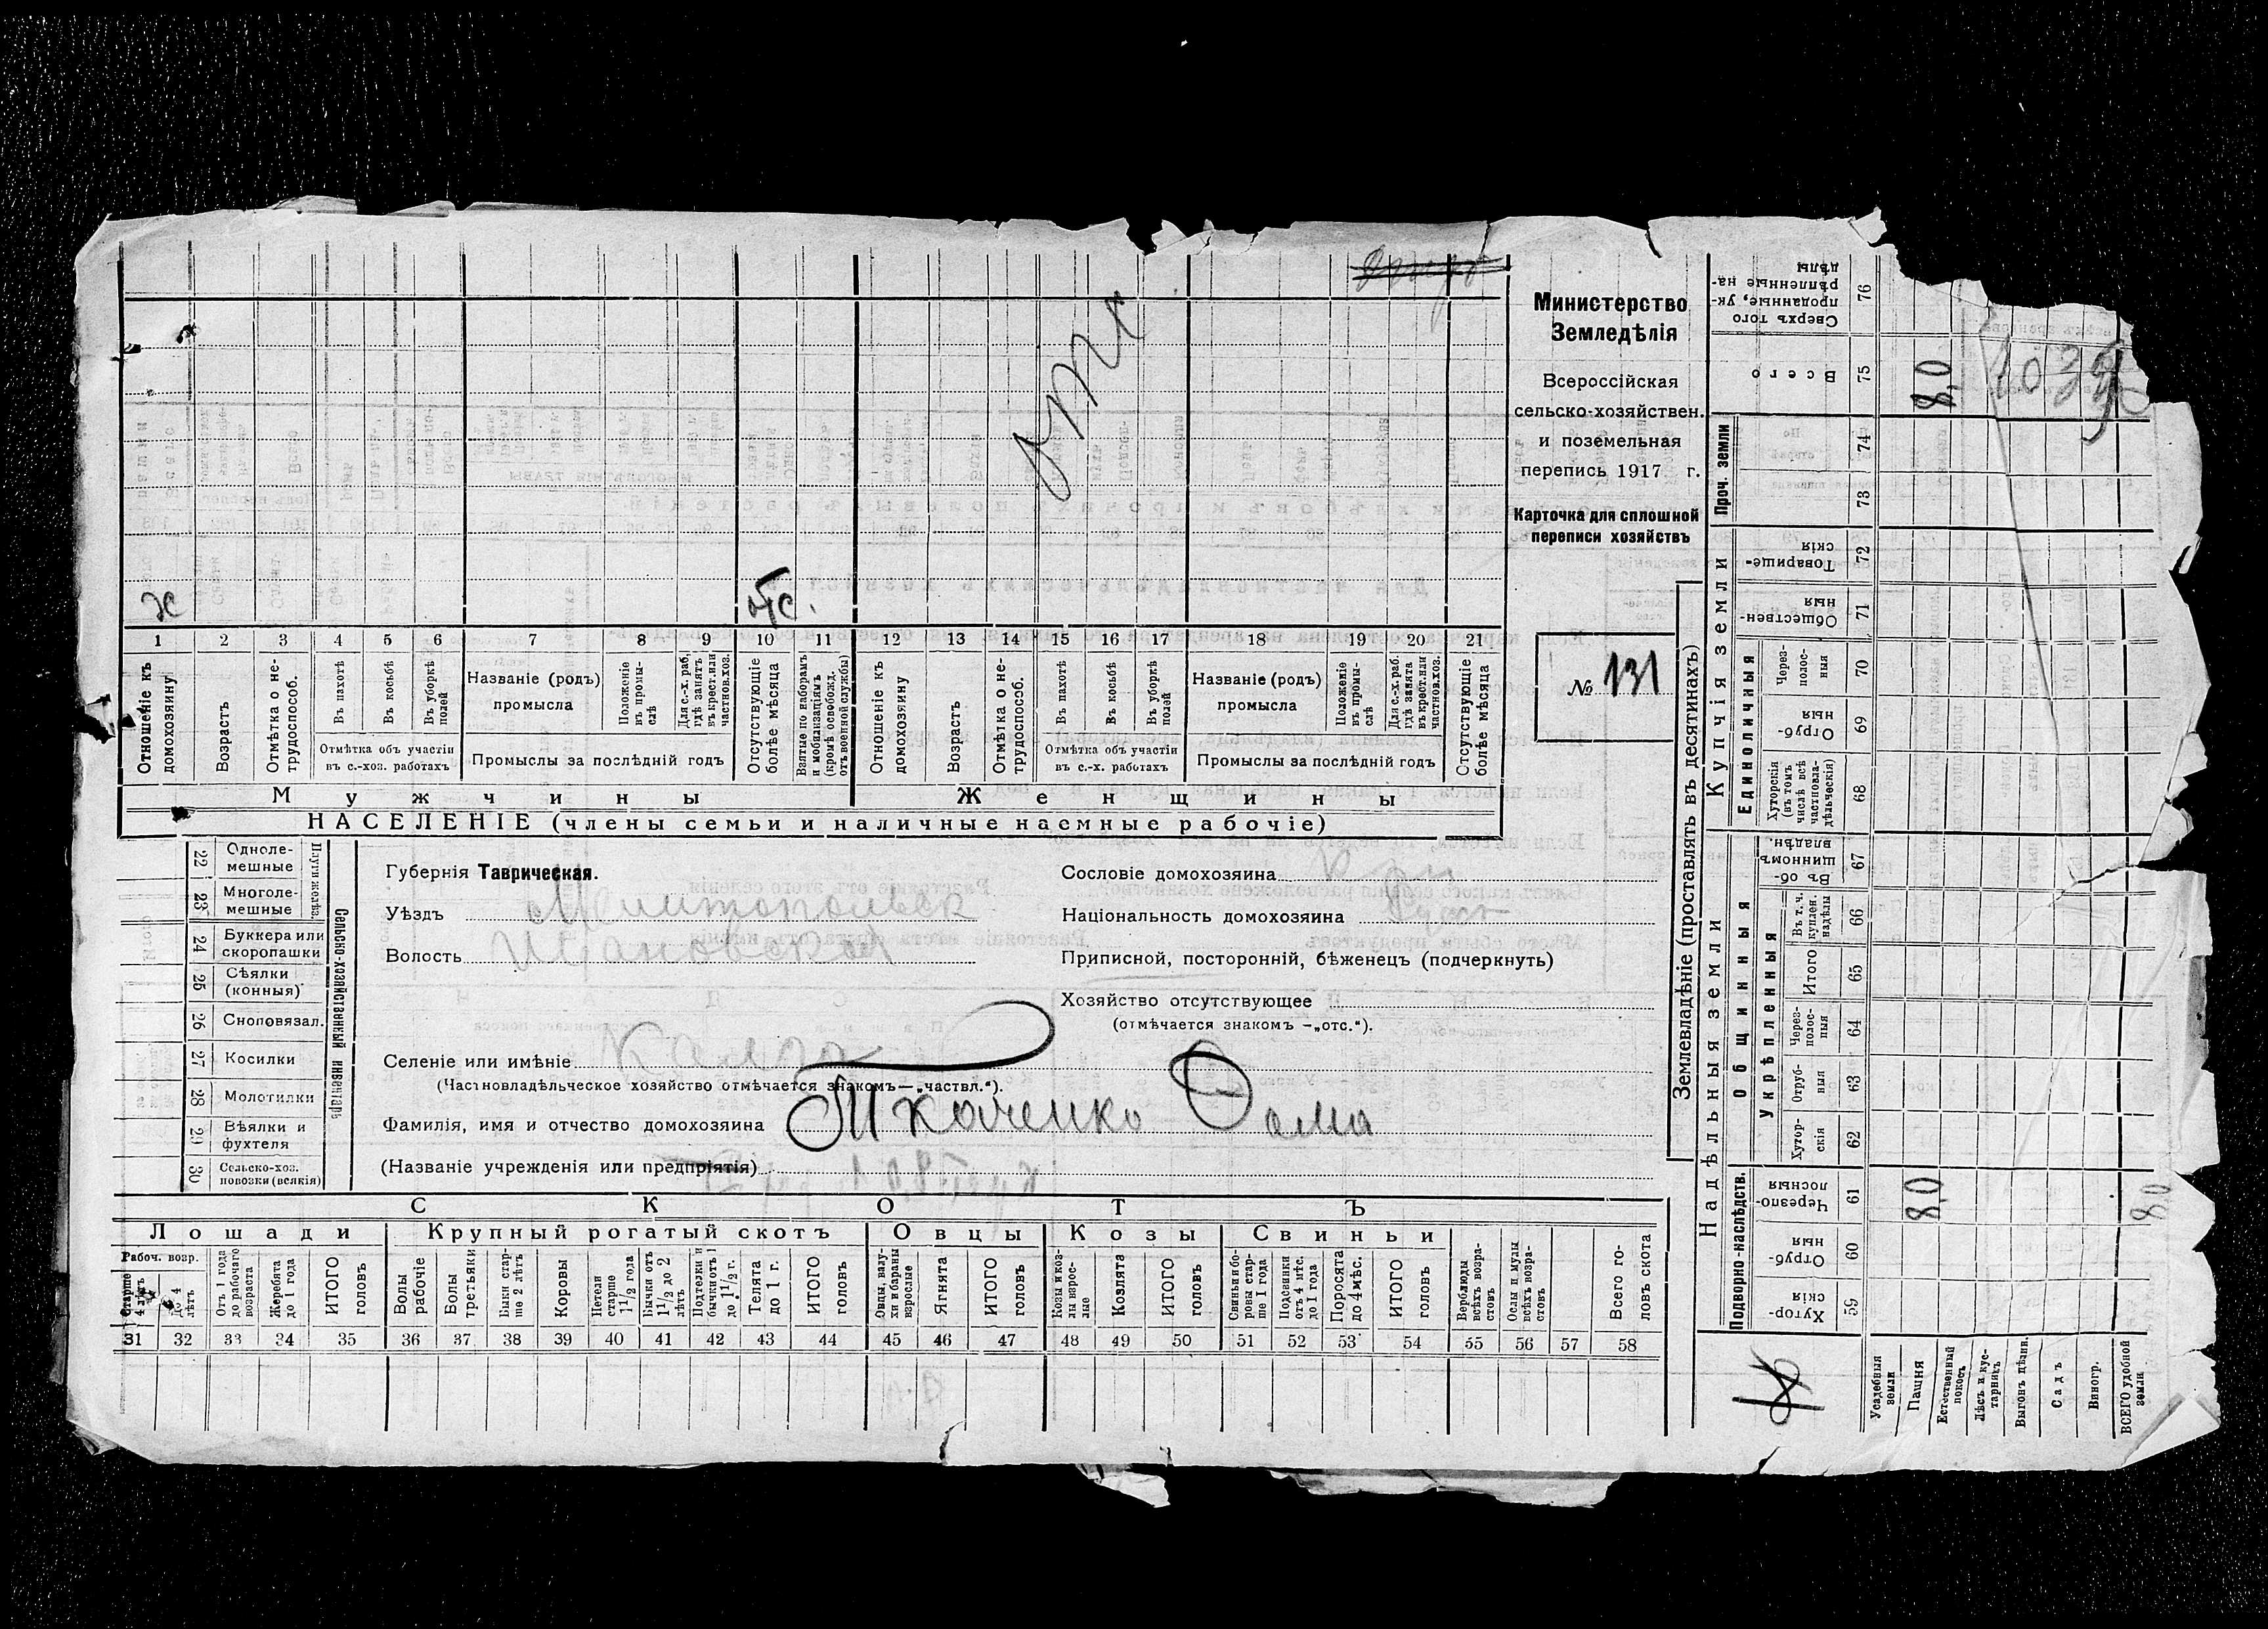 х
отс.
отс
1 2 3 4 5 6 7 8 9 10 11 12 13 14 15 16 17 18 19 20 21
Отношеніе къ домохозяину
Возрастъ
Отмѣтка о нетрудоспособ.
Въ пахотѣ
Въ косьбѣ
Въ уборкѣ полей
Отмѣтка объ участіи въ с.-хоз. работахъ
Названіе (родъ) промысла
Положеніе въ промыслѣ
Для с.-х. раб. гдѣ занятъ въ крест. или частнов. хоз.
Промыслы за послѣдній годъ
Отсутствующіе болѣе мѣсяца
Взятые по наборамъ и мобилизаціямъ (кромѣ освобожд. отъ военной службы)
Отношеніе къ домохозяину
Возрастъ
Отмѣтка о нетрудоспособ.
Въ пахотѣ
Въ косьбѣ
Въ уборкѣ полей
Отмѣтка объ участіи въ с.-х. работахъ
Названіе (родъ) промысла
Положеніе въ промыслѣ
Для с.-х. раб. гдѣ занята въ крест. или частнов. хоз.
Промыслы за послѣдній годъ
Отсутствующіе болѣе мѣсяца
Мужчины
Женщины
НАСЕЛЕНІЕ (члены семьи и наличные наемные рабочіе)
Министерство
Земледѣлія
Всероссійская
сельско-хозяйствен.
и поземельная
перепись 1917 г.
Карточка для сплошной
переписи хозяйствъ
№ 131
22 Однолемешные
23 Многолемешные
Плуги желѣз.
24 Буккера или скоропашки
25 Сѣялки (конныя)
26 Сноповязал.
27 Косилки
28 Молотилки
29 Вѣялки и фухтеля
30 Сельско-хоз. повозки (всякія)
Сельско-хозяйственный инвентарь
Губернія Таврическая.
Уѣздъ Мелитопольск
Волость
Селеніе или имѣніе
(Частновладѣльческое хозяйство отмѣчается знакомъ—„частвл.“).
Фамилія, имя и отчество домохозяина Ткаченко Фома
(Названіе учрежденія или предпріятія)
Сословіе домохозяина
Національность домохозяина
Приписной, посторонній, бѣженецъ (подчеркнуть)
Хозяйство отсутствующее
(отмѣчается знакомъ —„отс.“).
СКОТЪ
Лошади Крупный рогатый скотъ Овцы Козы Свиньи
Рабоч. возр.
Старше 4 лѣтъ
До 4 лѣтъ
Отъ 1 года до рабочаго возраста
Жеребята до 1 года
ИТОГО головъ
Волы рабочіе
Волы третьяки
Быки старше 2 лѣтъ
Коровы
Нетели старше 1 1/2 года
Бычки отъ 1 1/2 до 2 лѣтъ
Подтелки и бычки отъ 1 до 1 1/2 г.
Телята до 1 г.
ИТОГО головъ
Овцы, валухи и бараны взрослые
Ягнята
ИТОГО головъ
Козы и козлы взрослые
Козлята
ИТОГО головъ
Свиньи и боровы старше 1 года
Подсвинки отъ 4 мѣс. до 1 года
Поросята до 4 мѣс.
ИТОГО головъ
Верблюды всѣхъ возрастовъ
Ослы и мулы всѣхъ возрастовъ
Всего головъ скота
31 32 33 34 35 36 37 38 39 40 41 42 43 44 45 46 47 48 49 50 51 52 53 54 55 56 57 58
Землевладѣніе (проставлять въ десятинахъ)
Надѣльныя земли
Купчія земли
Проч. земли
Подворно-наслѣдств.
Общинныя
Укрѣпленныя
Единоличныя
Хуторскія 59
Отрубныя 60
Черезполосныя 61
Хуторскія 62
Отрубныя 63
Черезполосныя 64
Итого 65
Въ т. ч. куплен. надѣлы 66
Въ общинномъ владѣн. 67
Хуторскія (въ томъ числѣ всѣ частновладѣльческія) 68
Отрубныя 69
Черезполосныя 70
Общественныя 71
Товарищескія 72
73
74
Всего 75
Сверхъ того проданные, укрѣпленные надѣлы 76
Усадебныя земли
Пашня 8,0 8,0
Естественный покосъ
Лѣсъ и кустарникъ
Выгонъ дѣлин.
Садъ
Виногр.
ВСЕГО удобной земли 8,0